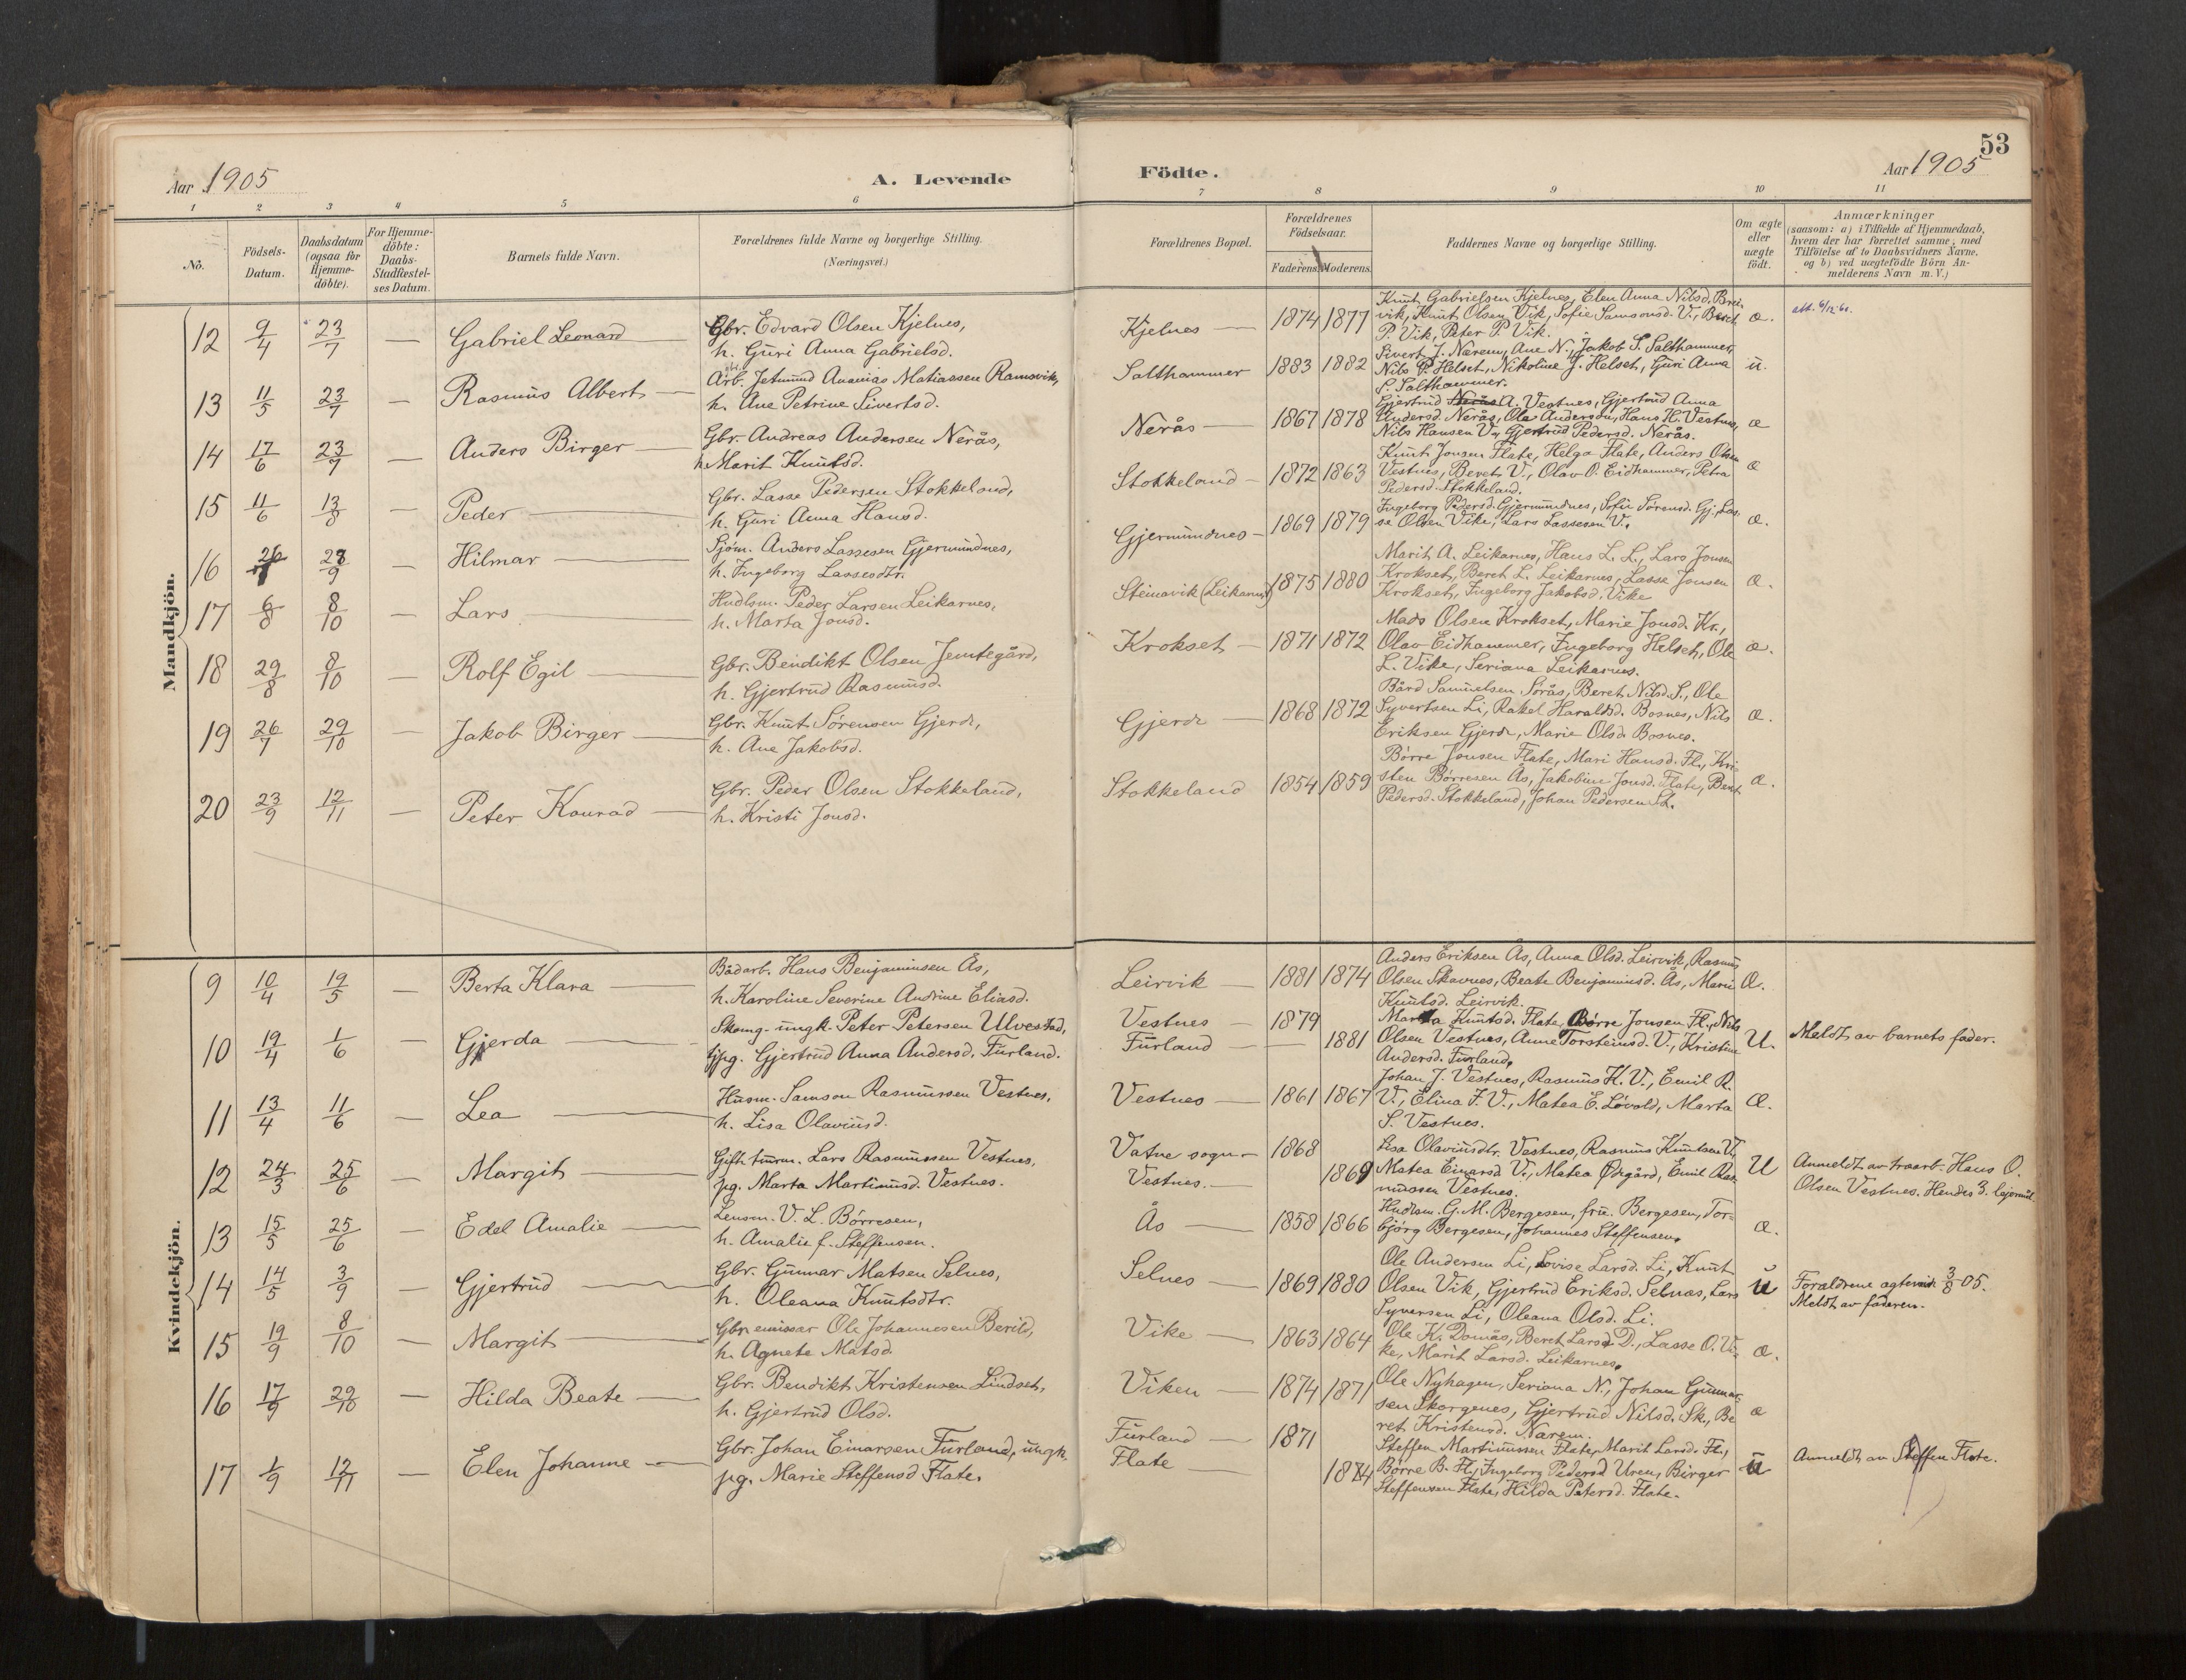 53
Aar 1905
A. Levende
Födte.
Aar 1905
1 2 3 4 5 6 7 8 9 10 11
No.
Födsels-Datum.
Daabsdatum (ogsaa for Hjemme-döbte).
For Hjemme-döbte: Daabs-Stadfæstel-ses Datum.
Barnets fulde Navn.
Forældrenes fulde Navne og borgerlige Stilling. (Næringsvei.)
Forældrenes Bopæl.
Forældrenes Födselsaar.
Faderens. Moderens.
Faddernes Navne og borgerlige Stilling.
Om ægte eller uægte födt.
Anmærkninger
(saasom: a) i Tilfælde af Hjemmedaab,
hvem der har forrettet samme, med
Tilföielse af to Daabsvidners Navne,
og b) ved uægtefödte Börn An-
melderens Navn m. V.)
Mandkjön.
12 9/4 23/7 — Gabriel Leonard
Gbr. Edvard Olsen Kjelnes,
h. Guri Anna Gabrielsd.
Kjelnes — 1874 1877
Knut Gabrielsen Kjelnes, Elen Anna Nilsd. Brei-
vik, Knut Olsen Vik, Sofie Samsonsd. V., Beret
P. Vik, Peter P. Vik.
æ.
att. 6/12 60.
13 11/5 23/7 — Rasmus Albert —
Arb. Jetmund Ananias Matiassen Ramsvik,
h. Ane Petrine Sivertsd.
Salthammer 1883 1882
Sivert J. Nærem, Ane N., Jakob S. Salthammer,
Nils P. Helset, Nikoline J. Helset, Guri Anna
S. Salthammer.
u.
14 17/6 23/7 — Anders Birger —
Gbr. Andreas Andersen Nerås,
h. Marit Knutsd.
Nerås — 1867 1878
Gjertrud Nerås A. Vestnes, Gjertrud Anna
Andersd. Nerås, Ole Andersen, Hans H. Vestnes,
Nils Hansen V., Gjertrud Pedersd. Nerås.
æ
15 11/6 13/8 — Peder —
Gbr. Lasse Pedersen Stokkeland,
h. Guri Anna Hansd.
Stokkeland — 1872 1863
Knut Jonsen Flate, Helga Flate, Anders Olsen
Vestnes, Beret V., Olav O. Eidhammer, Petra
Pedersd. Stokkeland.
æ
16 23/9 — Hilmar —
Sjøm. Anders Lassesen Gjermundnes,
h. Ingeborg Lassesdtr.
Gjermundnes — 1869 1879
Ingeborg Pedersd. Gjermundnes, Sofie Sørensd. Gj., Las-
se Olsen Vike, Lars Lassesen V.
æ.
17 6/8 8/10 — Lars —
Hndlsm. Peder Larsen Leikarnes,
h. Marta Jonsd.
Steinavik (Leikarnes) 1875 1880
Marit A. Leikarnes, Hans L. L., Lars Jonsen
Krokset, Beret L. Leikarnes, Lasse Jonsen
Krokset, Ingeborg Jakobsd. Vike
æ.
18 29/8 8/10 — Rolf Egil —
Gbr. Bendikt Olsen Jemtegård,
h. Gjertrud Rasmusd.
Krokset — 1871 1872
Mads Olsen Krokset, Marie Jonsd. Kr.,
Olav Eidhammer, Ingeborg Helset, Ole
L. Vike, Seriana Leikarnes.
æ.
19 26/7 29/10 — Jakob Birger —
Gbr. Knut Sørensen Gjerde,
h. Ane Jakobsd.
Gjerde — 1868 1872
Bård Samuelsen Sørås, Beret Nilsd. S., Ole
Syvertsen Li, Rakel Haraldsd. Bosnes, Nils
Eriksen Gjerde, Marie Olsd. Bosnes.
æ.
20 23/9 12/11 — Peter Konrad —
Gbr. Peder Olsen Stokkeland,
h. Kristi Jonsd.
Stokkeland 1854 1859
Børre Jonsen Flate, Mari Hansd. Fl., Kri-
sten Børresen Ås, Jakobine Jonsd. Flate, Beret
Pedersd. Stokkeland, Johan Pedersen St.
æ.
Kvindekjön.
9 10/4 19/5 — Berta Klara —
Bådarb. Hans Benjaminsen Ås,
h. Karoline Severine Andrine Eliasd.
Leirvik — 1881 1874
Anders Eriksen Ås, Anna Olsd. Leirvik, Rasmus
Olsen Skavnes, Beate Benjaminsd. Ås, Marie
Knutsd. Leirvik.
Æ.
10 19/4 1/6 — Gjerda —
Skomg. ungk. Peter Petersen Ulvestad,
tjpg. Gjertrud Anna Andersd. Furland.
Vestnes — 1879
Furland — — 1881
Marta Knutsd. Flate, Børre Jonsen Fl., Nils
Olsen Vestnes, Anne Torsteinsd. V., Kristine
Andersd. Furland.
U.
Meldt av barnets fader.
11 13/4 11/6 — Lea —
Husm. Samson Rasmussen Vestnes,
h. Lisa Olavusd.
Vestnes — 1861 1867
Johan J. Vestnes, Rasmus K. V., Emil R.
V., Elina F. V., Matea E. Løvold, Marta
S. Vestnes.
Æ.
12 24/3 25/6 — Margit —
Gift tmrm. Lars Rasmussen Vestnes,
pg. Marta Martinusd. Vestnes.
Vatne sogn — 1868
Vestnes. — 1869
Lisa Olavusdtr. Vestnes, Rasmus Knutsen V.,
Matea Einarsd V., Matea Ødegård, Emil Ras-
mussen Vestnes.
U
Anmeldt av traarb. Hans O.
Olsen Vestnes. Hendes 3. lejermål.
13 15/5 25/6 — Edel Amalie —
Lensm. V. L. Børresen,
h. Amalie f. Steffensen.
Ås — 1858 1866
Hndlsm. G. M. Bergesen, frue Bergesen, Tor-
bjørg Bergesen, Johannes Steffensen.
æ.
14 14/5 3/9 — Gjertrud —
Gbr. Gunnar Matsen Selnes,
h. Oleana Knutsdtr.
Selnes — 1869 1880
Ole Andersen Li, Lovise Larsd. Li, Knut
Olsen Vik, Gjertrud Eriksd. Selnes, Lars
Syversen Li, Oleana Olsd. Li.
u
Forældrene ægtevidt 3/8 05.
Meldt av faderen.
15 19/9 8/10 — Margit —
Gbr. emissær Ole Johannesen Berild,
h. Agnete Matsd.
Vike — 1863 1864
Ole K. Domås, Beret Larsd D., Lasse O. Vi-
ke, Marit Larsd. Leikarnes.
æ.
16 17/9 29/10 — Hilda Beate —
Gbr. Bendikt Kristensen Lindset,
h. Gjertrud Olsd.
Viken — 1874 1871
Ole Nyhagen, Seriana N., Johan Gunnar-
sen Skorgenes, Gjertrud Nilsd. Sk., Be
ret Kristensd. Nærem.
æ
17 1/9 12/11 — Elen Johanne —
Gbr. Johan Einarsen Furland, ungk.
pg. Marie Steffensd Flate.
Furland — 1871
Flate — 1874
Steffen Martinussen Flate, Marit Larsd. Fl.,
Børre B. Fl., Ingeborg Pedersd Uren, Birger
Steffensen Flate, Hilda Petersd. Flate.
u
Anmeldt av Steffen Flate.